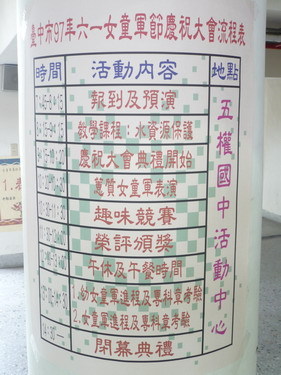 臺中市97年六一女童軍節慶祝大會流程表
時間 活動內容 地點
報到及預演
教學課程：水資源保護
慶祝大會典禮開始
篤質女童軍表演
趣味競賽
榮評頒獎
午休及午餐時間
1.幼女童軍進程及專科章考驗
2.女童軍進程及專科章考驗
閉幕典禮
五權國中活動中心